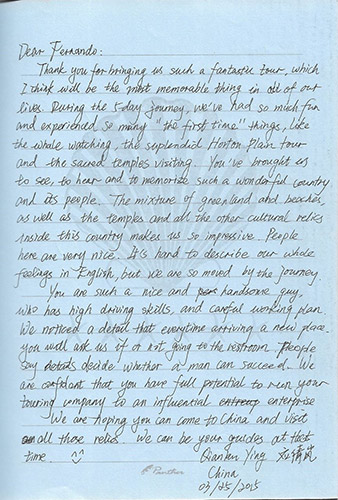 Dear Fernando:
Thank you for bringing us such a fantastic tour, which
I think will be the most memorable thing in all of our
lives. During the 5 day journey, we've had so much fun
and experienced so many "the first time" things, like
the whale watching, the suplendid Horton Plain tour
and the sacred temples visiting. You've brought us
to see, to hear and to memorize such a wonderful country
and its people. The mixture of greenland and beaches,
as well as the temples and all the other cultural relics
inside this country makes us so impressive. People
here are very nice. It's hard to describe our whole
feelings in English, but we are so moved by the journey.
You are such a nice and handsome guy,
who has high driving skills, and careful working plan.
We noticed a detail that everytime arriving a new place.
you will ask us if or not going to the restroom. People
say details decide whether a man can succeed. We
are confidant that you have full potential to run your
touring company to an influential enterprise
We are hoping you can come to China and visit
all those relics. We can be your guides at that
time ^_^ Qianwen Ying
Panther China
03/25/2015